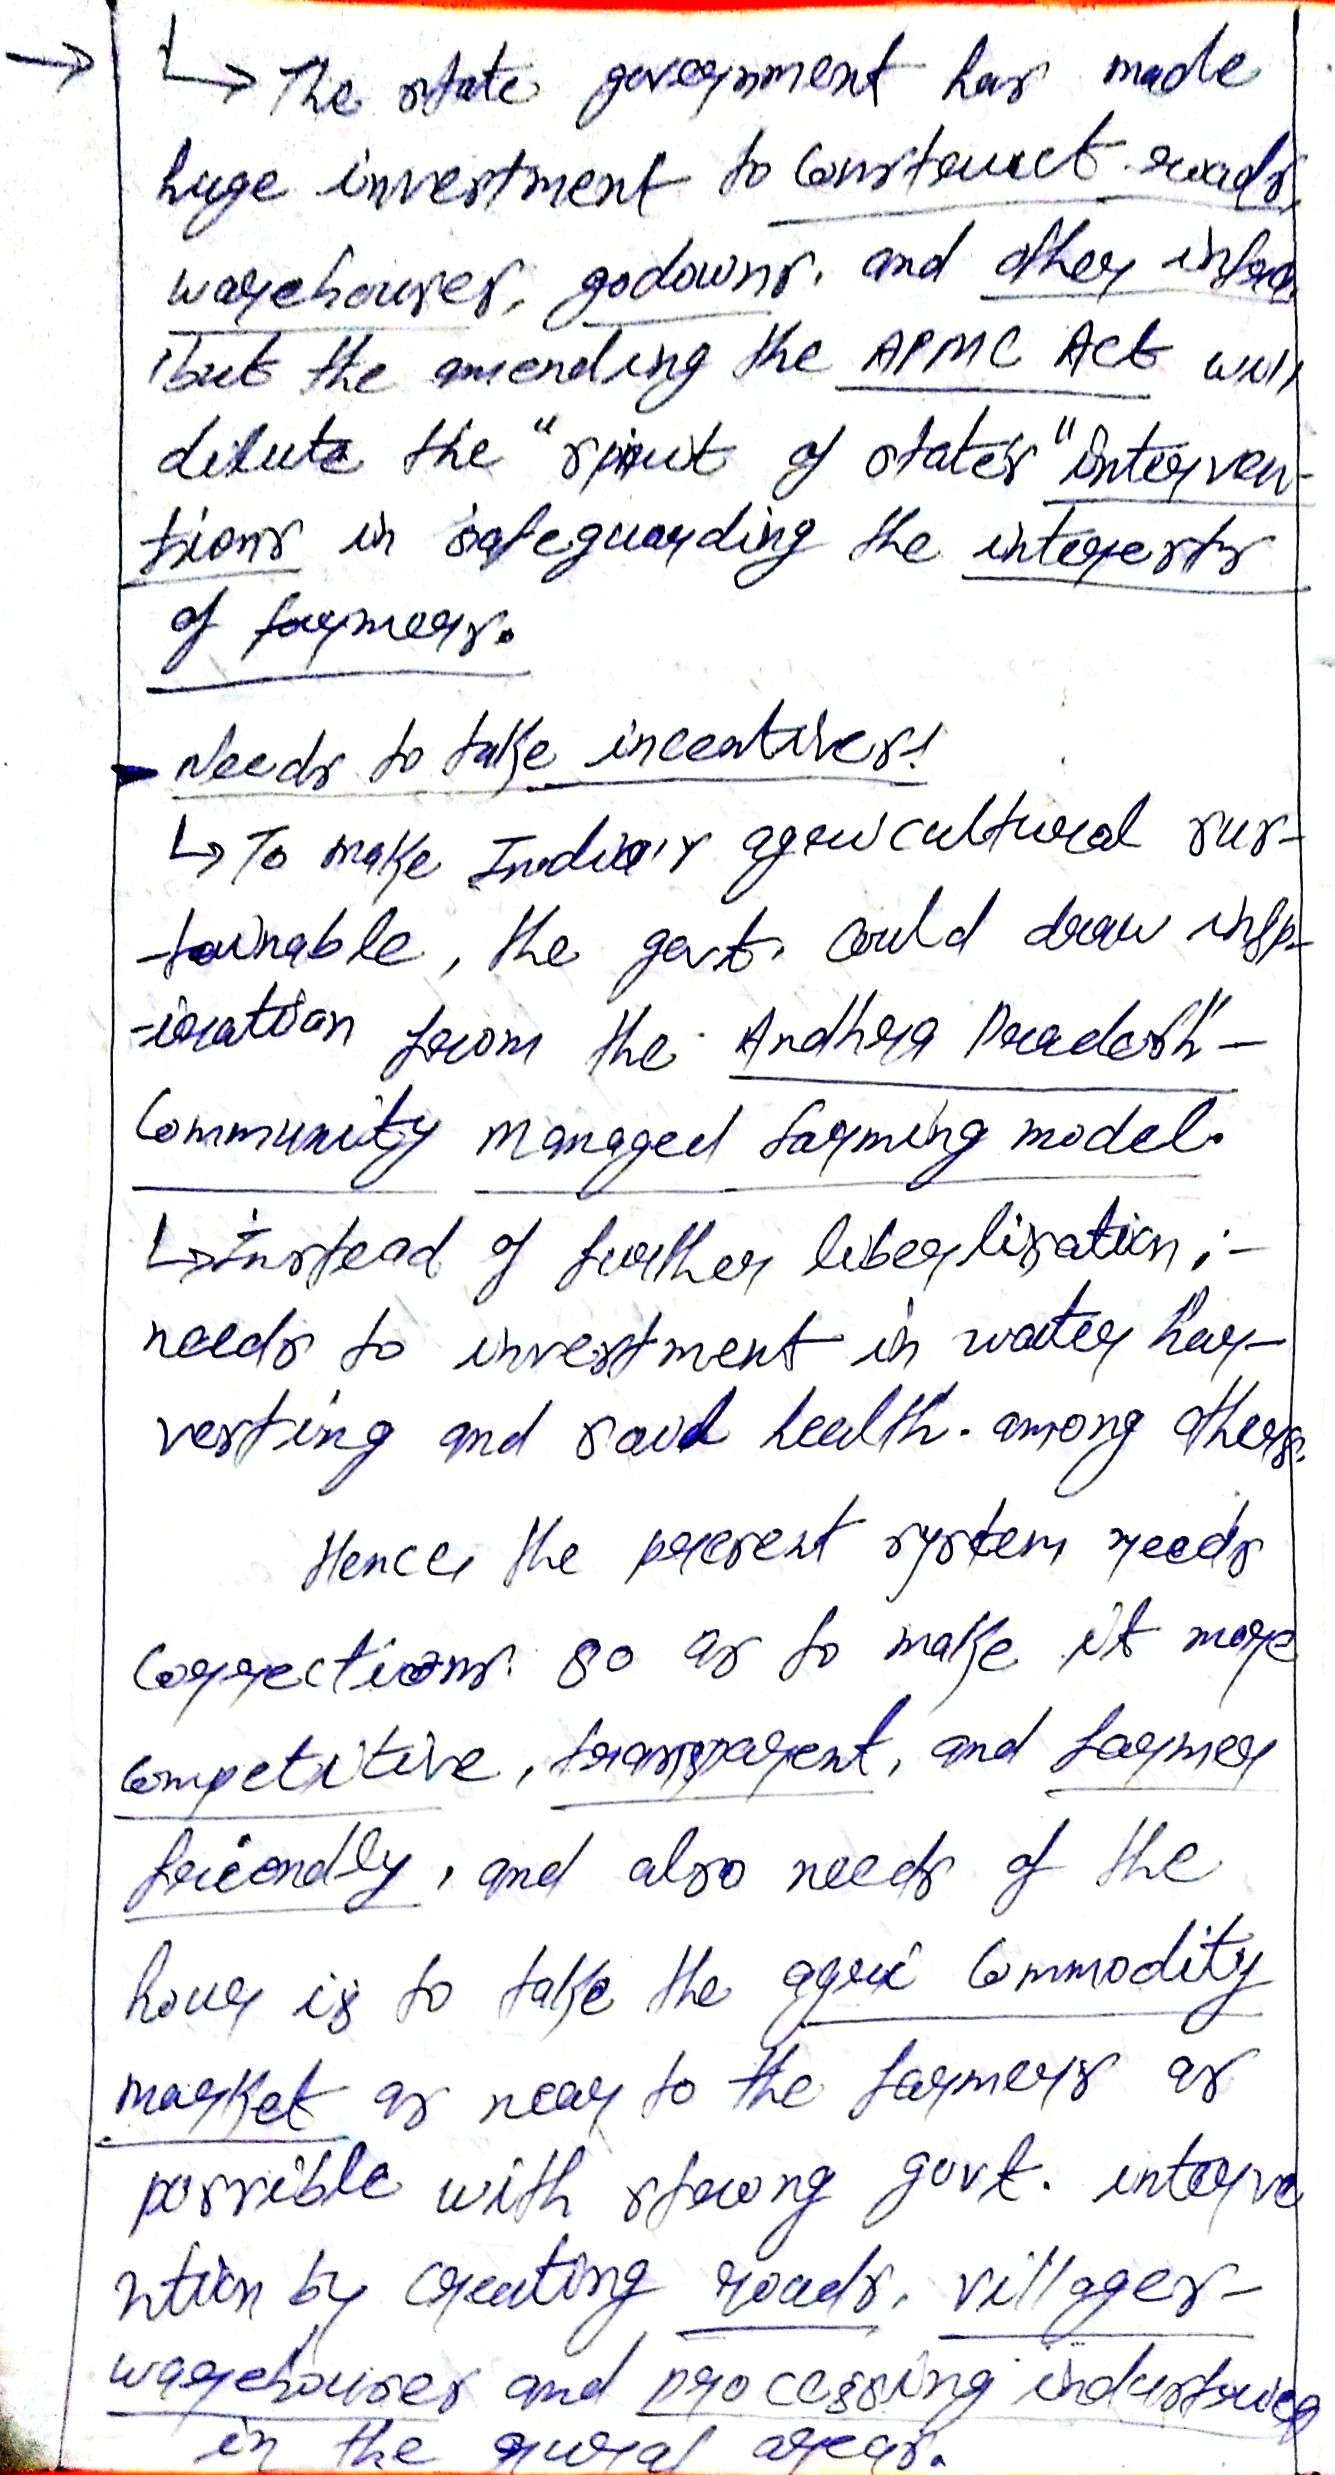 → ↳ The state government has made
huge investment to construct roads,
warehouses, godowns, and other infra
but the amending the APMC Act will
dilute the "spirit of state's" interven-
tions in safeguarding the interests
of farmers.
Needs to take incentives!
↳ To make India's agricultural sus-
-tainable, the govt. could draw insp-
-iration from the Andhra Pradesh -
Community managed farming model.
↳ Instead of further liberlisation; -
needs to investment in water har-
vesting and soil health. among others.
Hence, the present system needs
corrections. so as to make it more
competitive, transparent, and farmer
friendly, and also needs of the
hour is to take the agri commodity
market as near to the farmers as
possible with strong govt. interve
ntion by creating roads, villages -
warehouses and processing industries
in the rural areas.